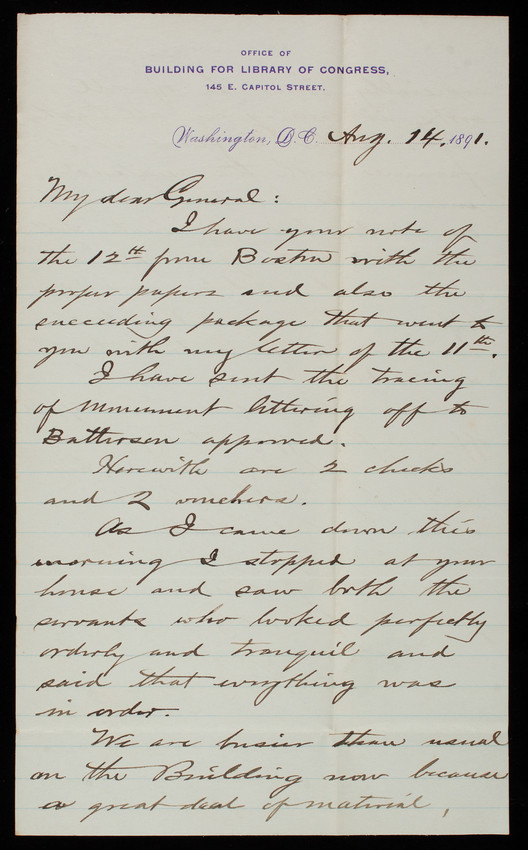 OFFICE OF
BUILDING FOR LIBRARY OF CONGRESS,
145 E. CAPITOL STREET.
Washington, D.C. Aug. 14, 1891.
My dear General:
I have your note of
the 12th from Boston with the
proper papers and also the
succeeding package that went to
you with my letter of the 11th.
I have sent the tracing
of Monument lettering off to
Batterson approved.
Herewith are 2 checks
and 2 vouchers.
As I came down this
morning I stopped at your
house and saw both the
servants who looked perfectly
orderly and tranquil and
said that everything was
in order.
We are busier than usual
on the Building now because
a great deal of material,